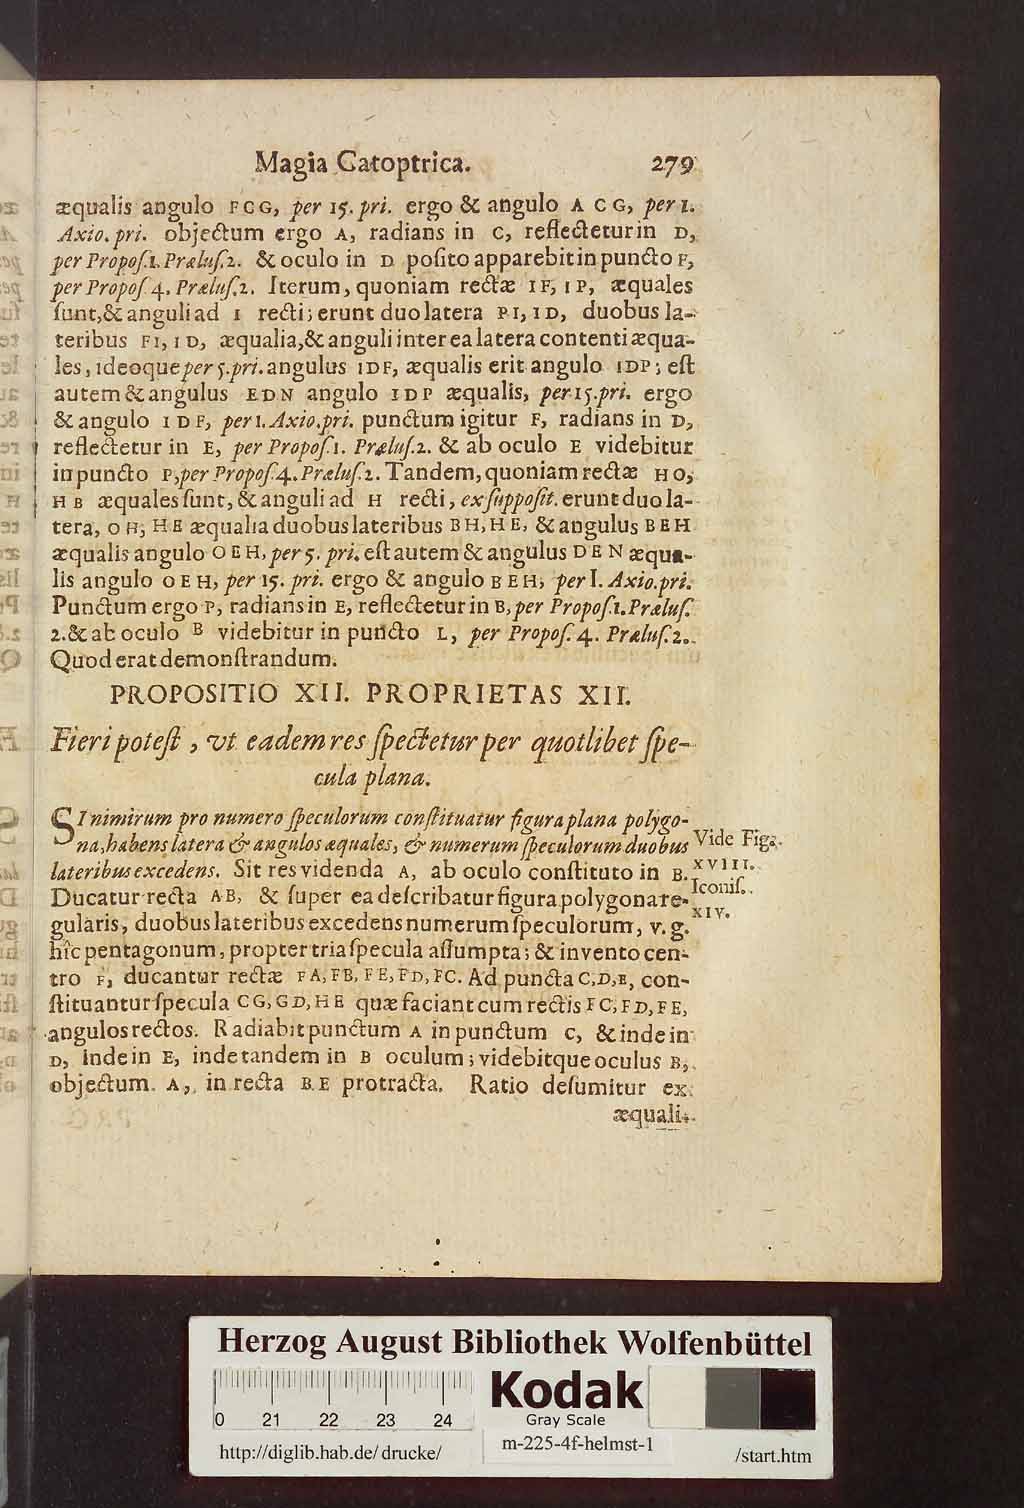 Magia Catoptrica. 279
æqualis angulo FCG, per 15. pri. ergo & angulo A C G, per 1.
Axio. pri. objectum ergo A, radians in C, reflectetur in D,
per Propoſ.1. Præluſ.2. & oculo in D poſito apparebit in puncto F,
per Propoſ 4. Præluſ.2. Iterum, quoniam rectæ IF, IP, æquales
ſunt, & anguli ad I recti; erunt duo latera PI, ID, duobus la-
teribus FI, ID, æqualia, & anguli inter ea latera contenti æqua-
les, ideoque per 5. pri. angulus IDF, æqualis erit angulo IDP; eſt
autem & angulus EDN angulo IDP æqualis, per 15. pri. ergo
& angulo IDF, per 1. Axio. pri. punctum igitur F, radians in D,
reflectetur in E, per Propoſ.1. Præluſ.2. & ab oculo E videbitur
in puncto P, per Propoſ.4. Præluſ.2. Tandem, quoniam rectæ HO,
HB æquales ſunt, & anguli ad H recti, ex ſuppoſit. erunt duo la-
tera, OH, HE æqualia duobus lateribus BH, HE, & angulus BEH
æqualis angulo OEH, per 5. pri. eſt autem & angulus DEN æqua-
lis angulo OEH, per 15. pri. ergo & angulo BEH, per I. Axio. pri.
Punctum ergo P, radians in E, reflectetur in B, per Propoſ.1. Præluſ.
2. & ab oculo B videbitur in puncto L, per Propoſ. 4. Præluſ.2.
Quod erat demonſtrandum.
PROPOSITIO XII. PROPRIETAS XII.
Fieri poteſt, vt eadem res ſpectetur per quotlibet ſpe-
cula plana.
SI nimirum pro numero ſpeculorum conſtituatur figura plana polygo-
na, habens latera & angulos æquales, & numerum ſpeculorum duobus
lateribus excedens. Sit res videnda A, ab oculo conſtituto in B.
Vide Fig.
XVIII.
Iconiſ.
XIV.
Ducatur recta AB, & ſuper ea deſcribatur figura polygona re-
gularis, duobus lateribus excedens numerum ſpeculorum, v. g.
hîc pentagonum, propter tria ſpecula aſſumpta; & invento cen-
tro F, ducantur rectæ FA, FB, FE, FD, FC. Ad puncta C, D, E, con-
ſtituantur ſpecula CG, GD, HE quæ faciant cum rectis FC, FD, FE,
angulos rectos. Radiabit punctum A in punctum C, & inde in
D, inde in E, inde tandem in B oculum; videbitque oculus B,
objectum A, in recta BE protracta. Ratio deſumitur ex
æquali-
Herzog August Bibliothek Wolfenbüttel
0 21 22 23 24
Kodak
Gray Scale
http://diglib.hab.de/drucke/
m-225-4f-helmst-1
/start.htm